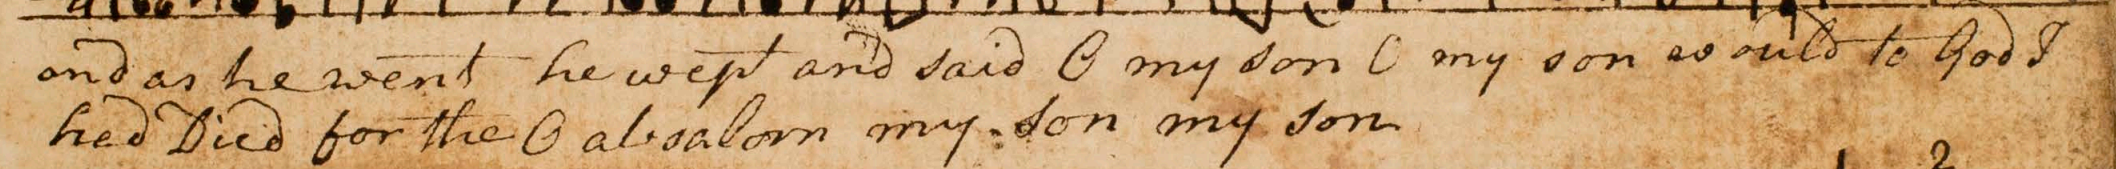 and as he went he wept and said O my son O my son would to God I
had Died for the O absalom my son my son
1 2